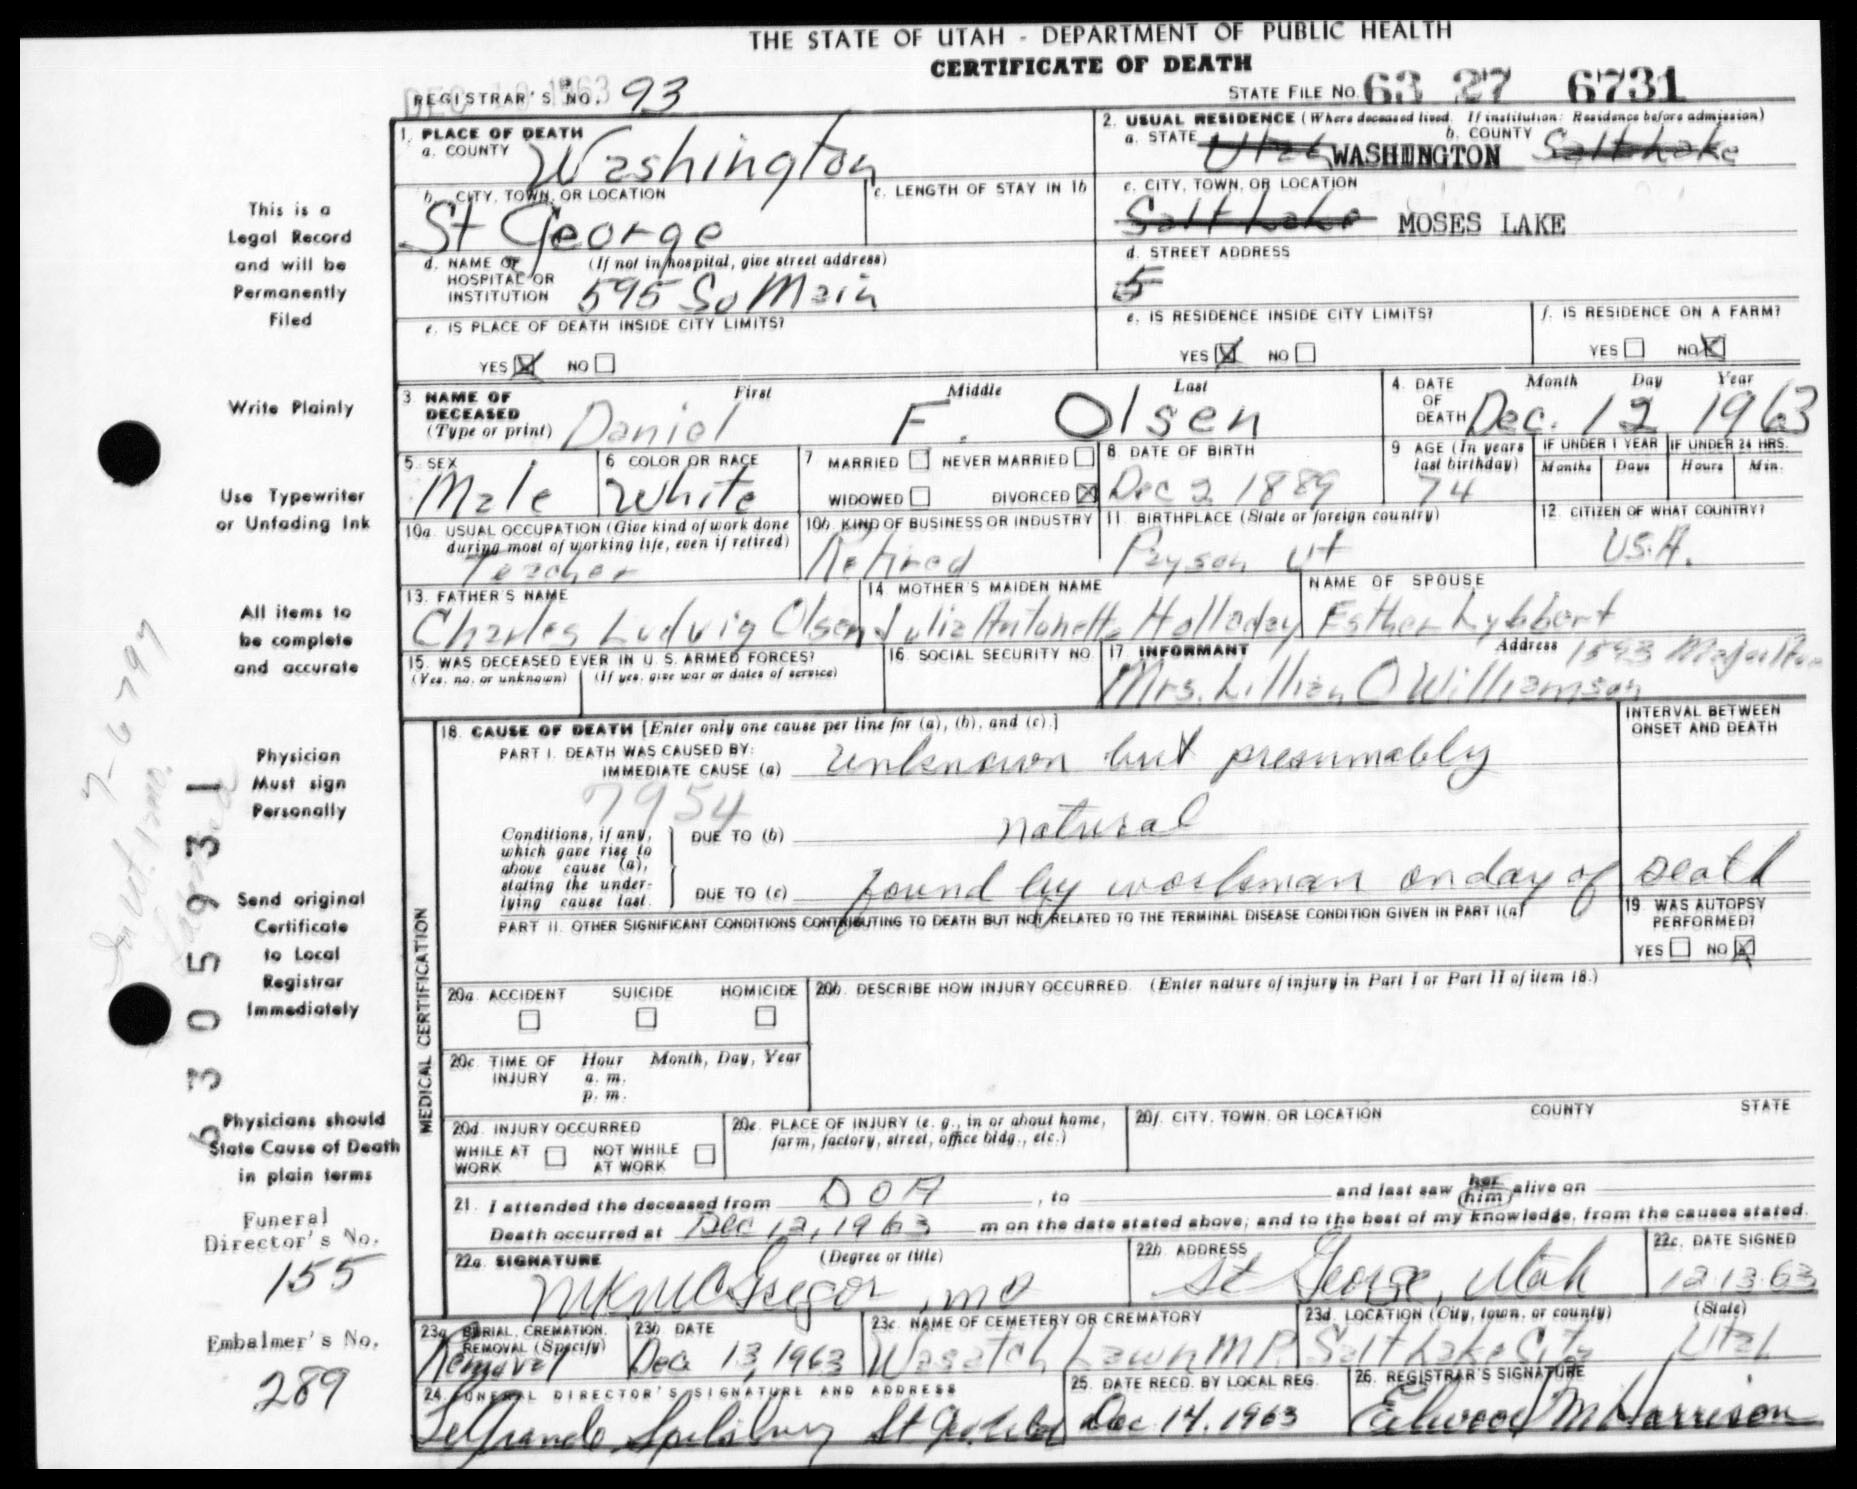 THE STATE OF UTAH - DEPARTMENT OF PUBLIC HEALTH
CERTIFICATE OF DEATH
DEC 1963
REGISTRAR'S NO. 93
STATE FILE NO. 63 27 6731
1. PLACE OF DEATH
a. COUNTY Washington
2. USUAL RESIDENCE (Where deceased lived. If institution: Residence before admission)
a. STATE Utah WASHINGTON b. COUNTY Salt Lake
b. CITY, TOWN, OR LOCATION St George
c. LENGTH OF STAY IN 1b
c. CITY, TOWN, OR LOCATION
Salt Lake MOSES LAKE
d. NAME OF HOSPITAL OR INSTITUTION (If not in hospital, give street address) 595 So Main
d. STREET ADDRESS
5
e. IS PLACE OF DEATH INSIDE CITY LIMITS?
YES NO
e. IS RESIDENCE INSIDE CITY LIMITS?
YES NO
f. IS RESIDENCE ON A FARM?
YES NO
3. NAME OF DECEASED (Type or print)
First Middle Last
Daniel F. Olsen
4. DATE OF DEATH
Month Day Year
Dec. 12 1963
5. SEX
Male
6 COLOR OR RACE
White
7 MARRIED NEVER MARRIED
WIDOWED DIVORCED
8 DATE OF BIRTH
Dec 2 1889
9 AGE (In years last birthday)
74
IF UNDER 1 YEAR
Months Days
IF UNDER 24 HRS.
Hours Min.
10a. USUAL OCCUPATION (Give kind of work done during most of working life, even if retired)
Teacher
10b. KIND OF BUSINESS OR INDUSTRY
Retired
11. BIRTHPLACE (State or foreign country)
Payson Ut
12 CITIZEN OF WHAT COUNTRY?
U.S.A.
13. FATHER'S NAME
Charles Ludvig Olsen
14 MOTHER'S MAIDEN NAME
Julia Antonette Holladay
NAME OF SPOUSE
Esther Lybbert
15. WAS DECEASED EVER IN U. S. ARMED FORCES?
(Yes, no, or unknown) (If yes, give war or dates of service)
16. SOCIAL SECURITY NO.
17. INFORMANT Address 1593
Mrs. Lillian O Williamson
18. CAUSE OF DEATH [Enter only one cause per line for (a), (b), and (c).]
INTERVAL BETWEEN ONSET AND DEATH
PART I. DEATH WAS CAUSED BY:
IMMEDIATE CAUSE (a) unknown but presumably
7954
Conditions, if any, which gave rise to above cause (a), stating the underlying cause last.
DUE TO (b) natural
DUE TO (c) found by workman on day of death
PART II. OTHER SIGNIFICANT CONDITIONS CONTRIBUTING TO DEATH BUT NOT RELATED TO THE TERMINAL DISEASE CONDITION GIVEN IN PART I(a)
19. WAS AUTOPSY PERFORMED?
YES NO
MEDICAL CERTIFICATION
20a. ACCIDENT SUICIDE HOMICIDE
20b. DESCRIBE HOW INJURY OCCURRED. (Enter nature of injury in Part I or Part II of item 18.)
20c. TIME OF INJURY Hour Month, Day, Year
a. m.
p. m.
20d. INJURY OCCURRED
WHILE AT WORK NOT WHILE AT WORK
20e. PLACE OF INJURY (e. g., in or about home, farm, factory, street, office bldg., etc.)
20f. CITY, TOWN, OR LOCATION COUNTY STATE
21. I attended the deceased from DOA , to and last saw her (him) alive on
Death occurred at Dec 12, 1963 m on the date stated above; and to the best of my knowledge, from the causes stated.
22a. SIGNATURE (Degree or title)
MK McGregor, MD
22b. ADDRESS
St George, Utah
22c. DATE SIGNED
12-13-63
23a. BURIAL, CREMATION, REMOVAL (Specify)
Removal
23b. DATE
Dec. 13, 1963
23c. NAME OF CEMETERY OR CREMATORY
Wasatch Lawn M.P.
23d. LOCATION (City, town, or county) (State)
Salt Lake City Utah
24. FUNERAL DIRECTOR'S SIGNATURE AND ADDRESS
LeGrande Spilsbury St Geo. Utah
25. DATE RECD. BY LOCAL REG.
Dec. 14, 1963
26. REGISTRAR'S SIGNATURE
Elwood M Harrison
This is a
Legal Record
and will be
Permanently
Filed
Write Plainly
Use Typewriter
or Unfading Ink
All items to
be complete
and accurate
Physician
Must sign
Personally
Send original
Certificate
to Local
Registrar
Immediately
Physicians should
State Cause of Death
in plain terms
Funeral
Director's No.
155
Embalmer's No.
289
63059931